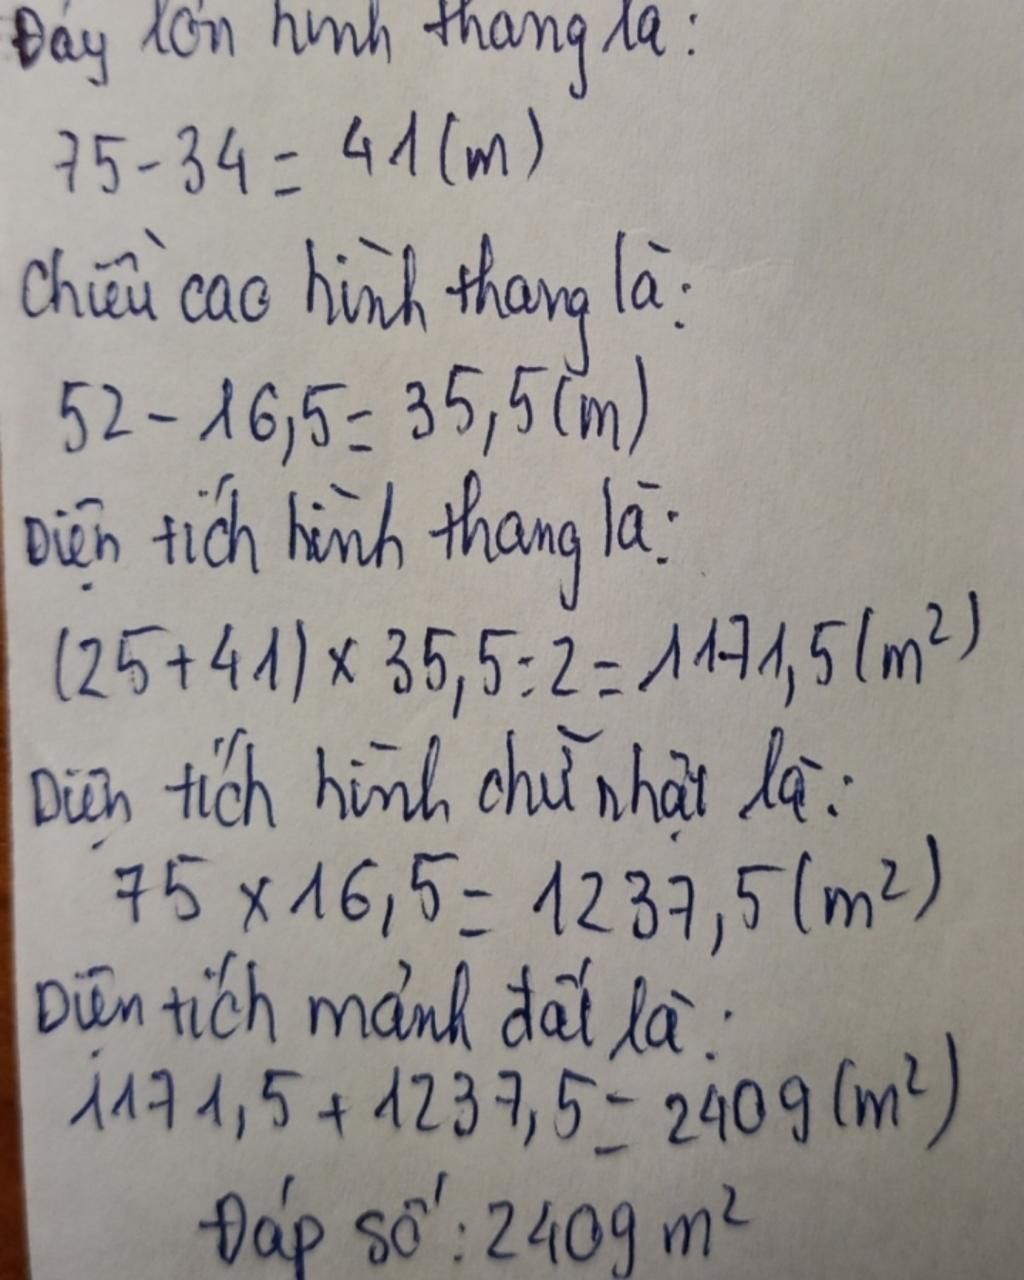 Đáy lớn hình thang là:
75 - 34 = 41 (m)
Chiều cao hình thang là:
52 - 16,5 = 35,5 (m)
Diện tích hình thang là:
(25 + 41) × 35,5 : 2 = 1171,5 (m²)
Diện tích hình chữ nhật là:
75 × 16,5 = 1237,5 (m²)
Diện tích mảnh đất là:
1171,5 + 1237,5 = 2409 (m²)
Đáp số : 2409 m²